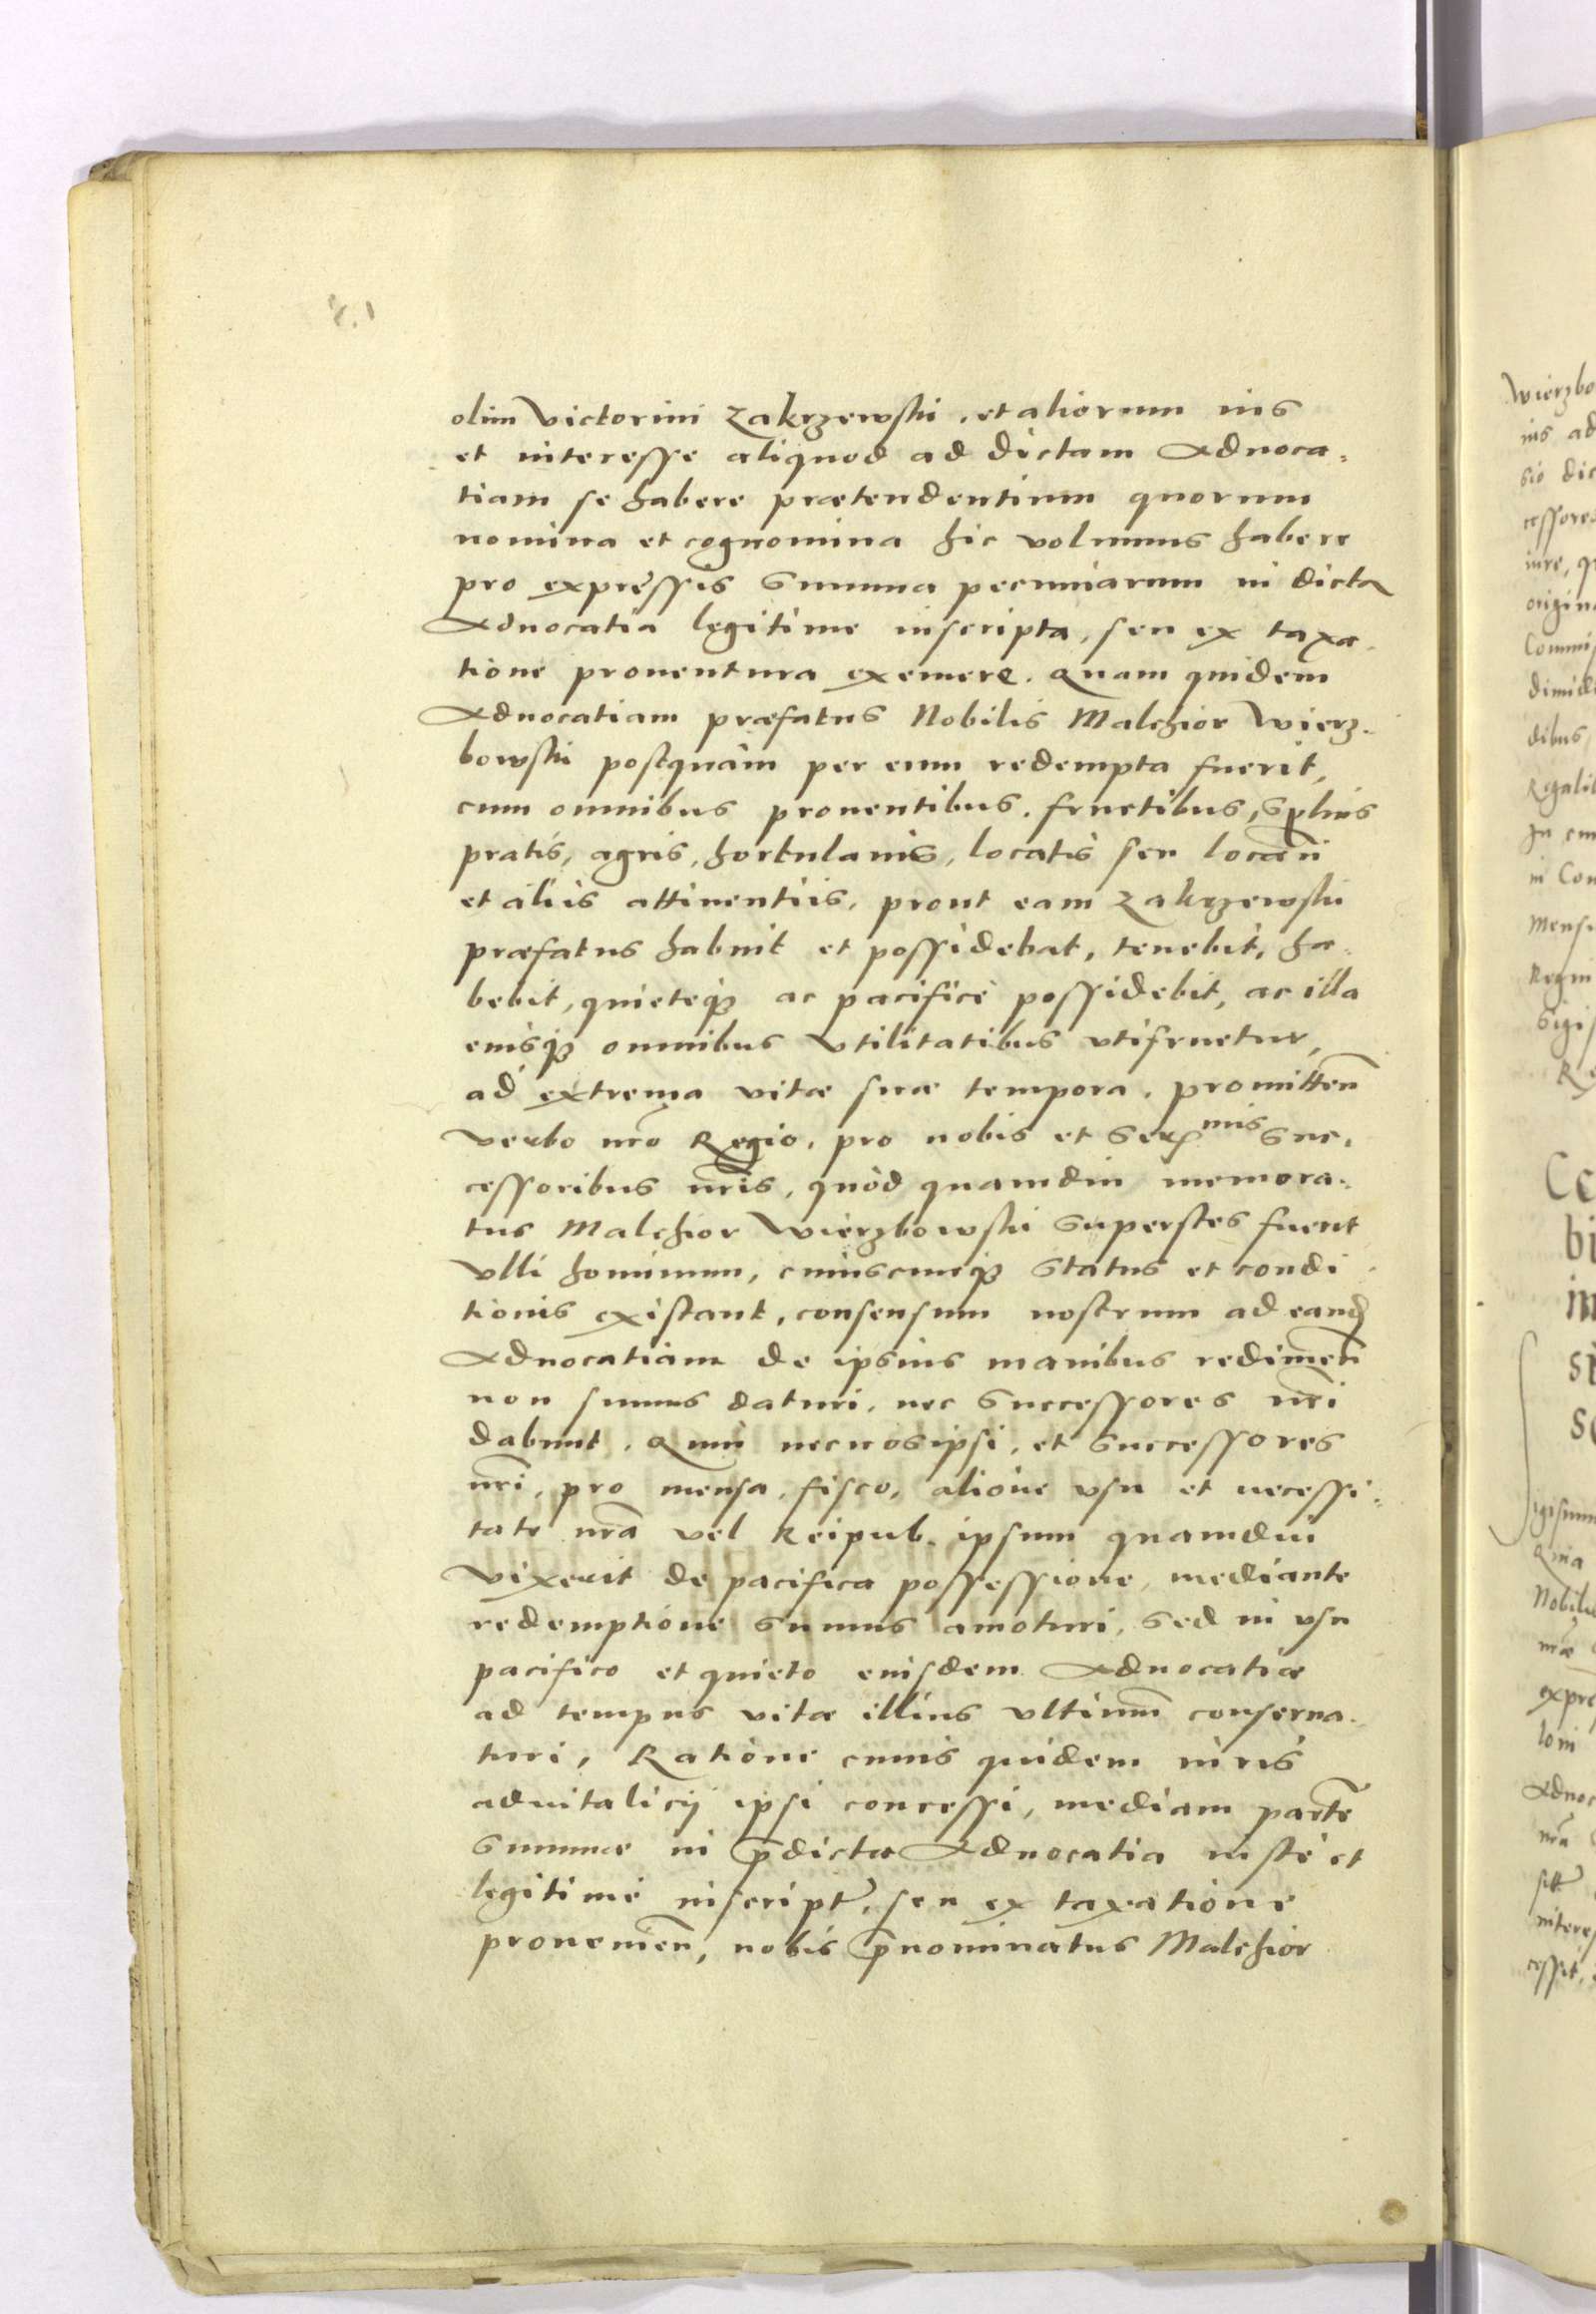 olim Victorini Zakrzewski, et aliorum ius
et interesse aliquod ad dictam Aduoca-
tiam se habere prætendentium quorum
nomina et cognomina hic volumus habere
pro expressis Summa pecuniarum in dicta
Aduocatia legitime inscripta, seu ex taxa-
tione prouentura eximere. Quam quidem
Aduocatiam præfatus Nobilis Malchior Wierz-
bowski postquàm per eum redempta fuerit,
cum omnibus prouentibus, fructibus,
pratis, agris, hortulanis, locatis seu locan̄
et aliis attinentiis, prout eam Zakrzewski
præfatus habuit et possidebat, tenebit, ha-
bebit, quieteqȝ ac pacificè possidebit, ac illa
eiusqȝ omnibus Vtilitatibus vtifruetur,
ad extrema vitæ suæ tempora, promitten̄
verbo nr̄o Regio, pro nobis et Ser^mis Suc-
cessoribus nr̄is, quòd quamdiu memora-
tus Malchior Wierzbowski Superstes fuerit
Vlli hominum, cuiuscunqȝ Status et condi-
tionis existant, consensum nostrum ad eand
Aduocatiam de ipsius manibus redimen̄
non sumus daturi, nec Successores nr̄i
dabunt. Quin nec nos ipsi, et Successores
nr̄i, pro mensa, fisco, alioue vsu et necessi-
tate nr̄a vel Reipub. ipsum quamdiu
Vixerit de pacifica possessione, mediante
redemptione Sumus amoturi, Sed in vsu
pacifico et quieto eiusdem Aduocatiæ
ad tempus vitæ illius Vltimum̄ conserua-
turi, Ratione cuius quidem iuris
aduitalicij ipsi concessi, mediam partē
Summæ in p̄dicta Aduocatia iustè et
legitimè inscript, seu ex taxatione
prouenien̄, nobis p̄nominatus Malchior